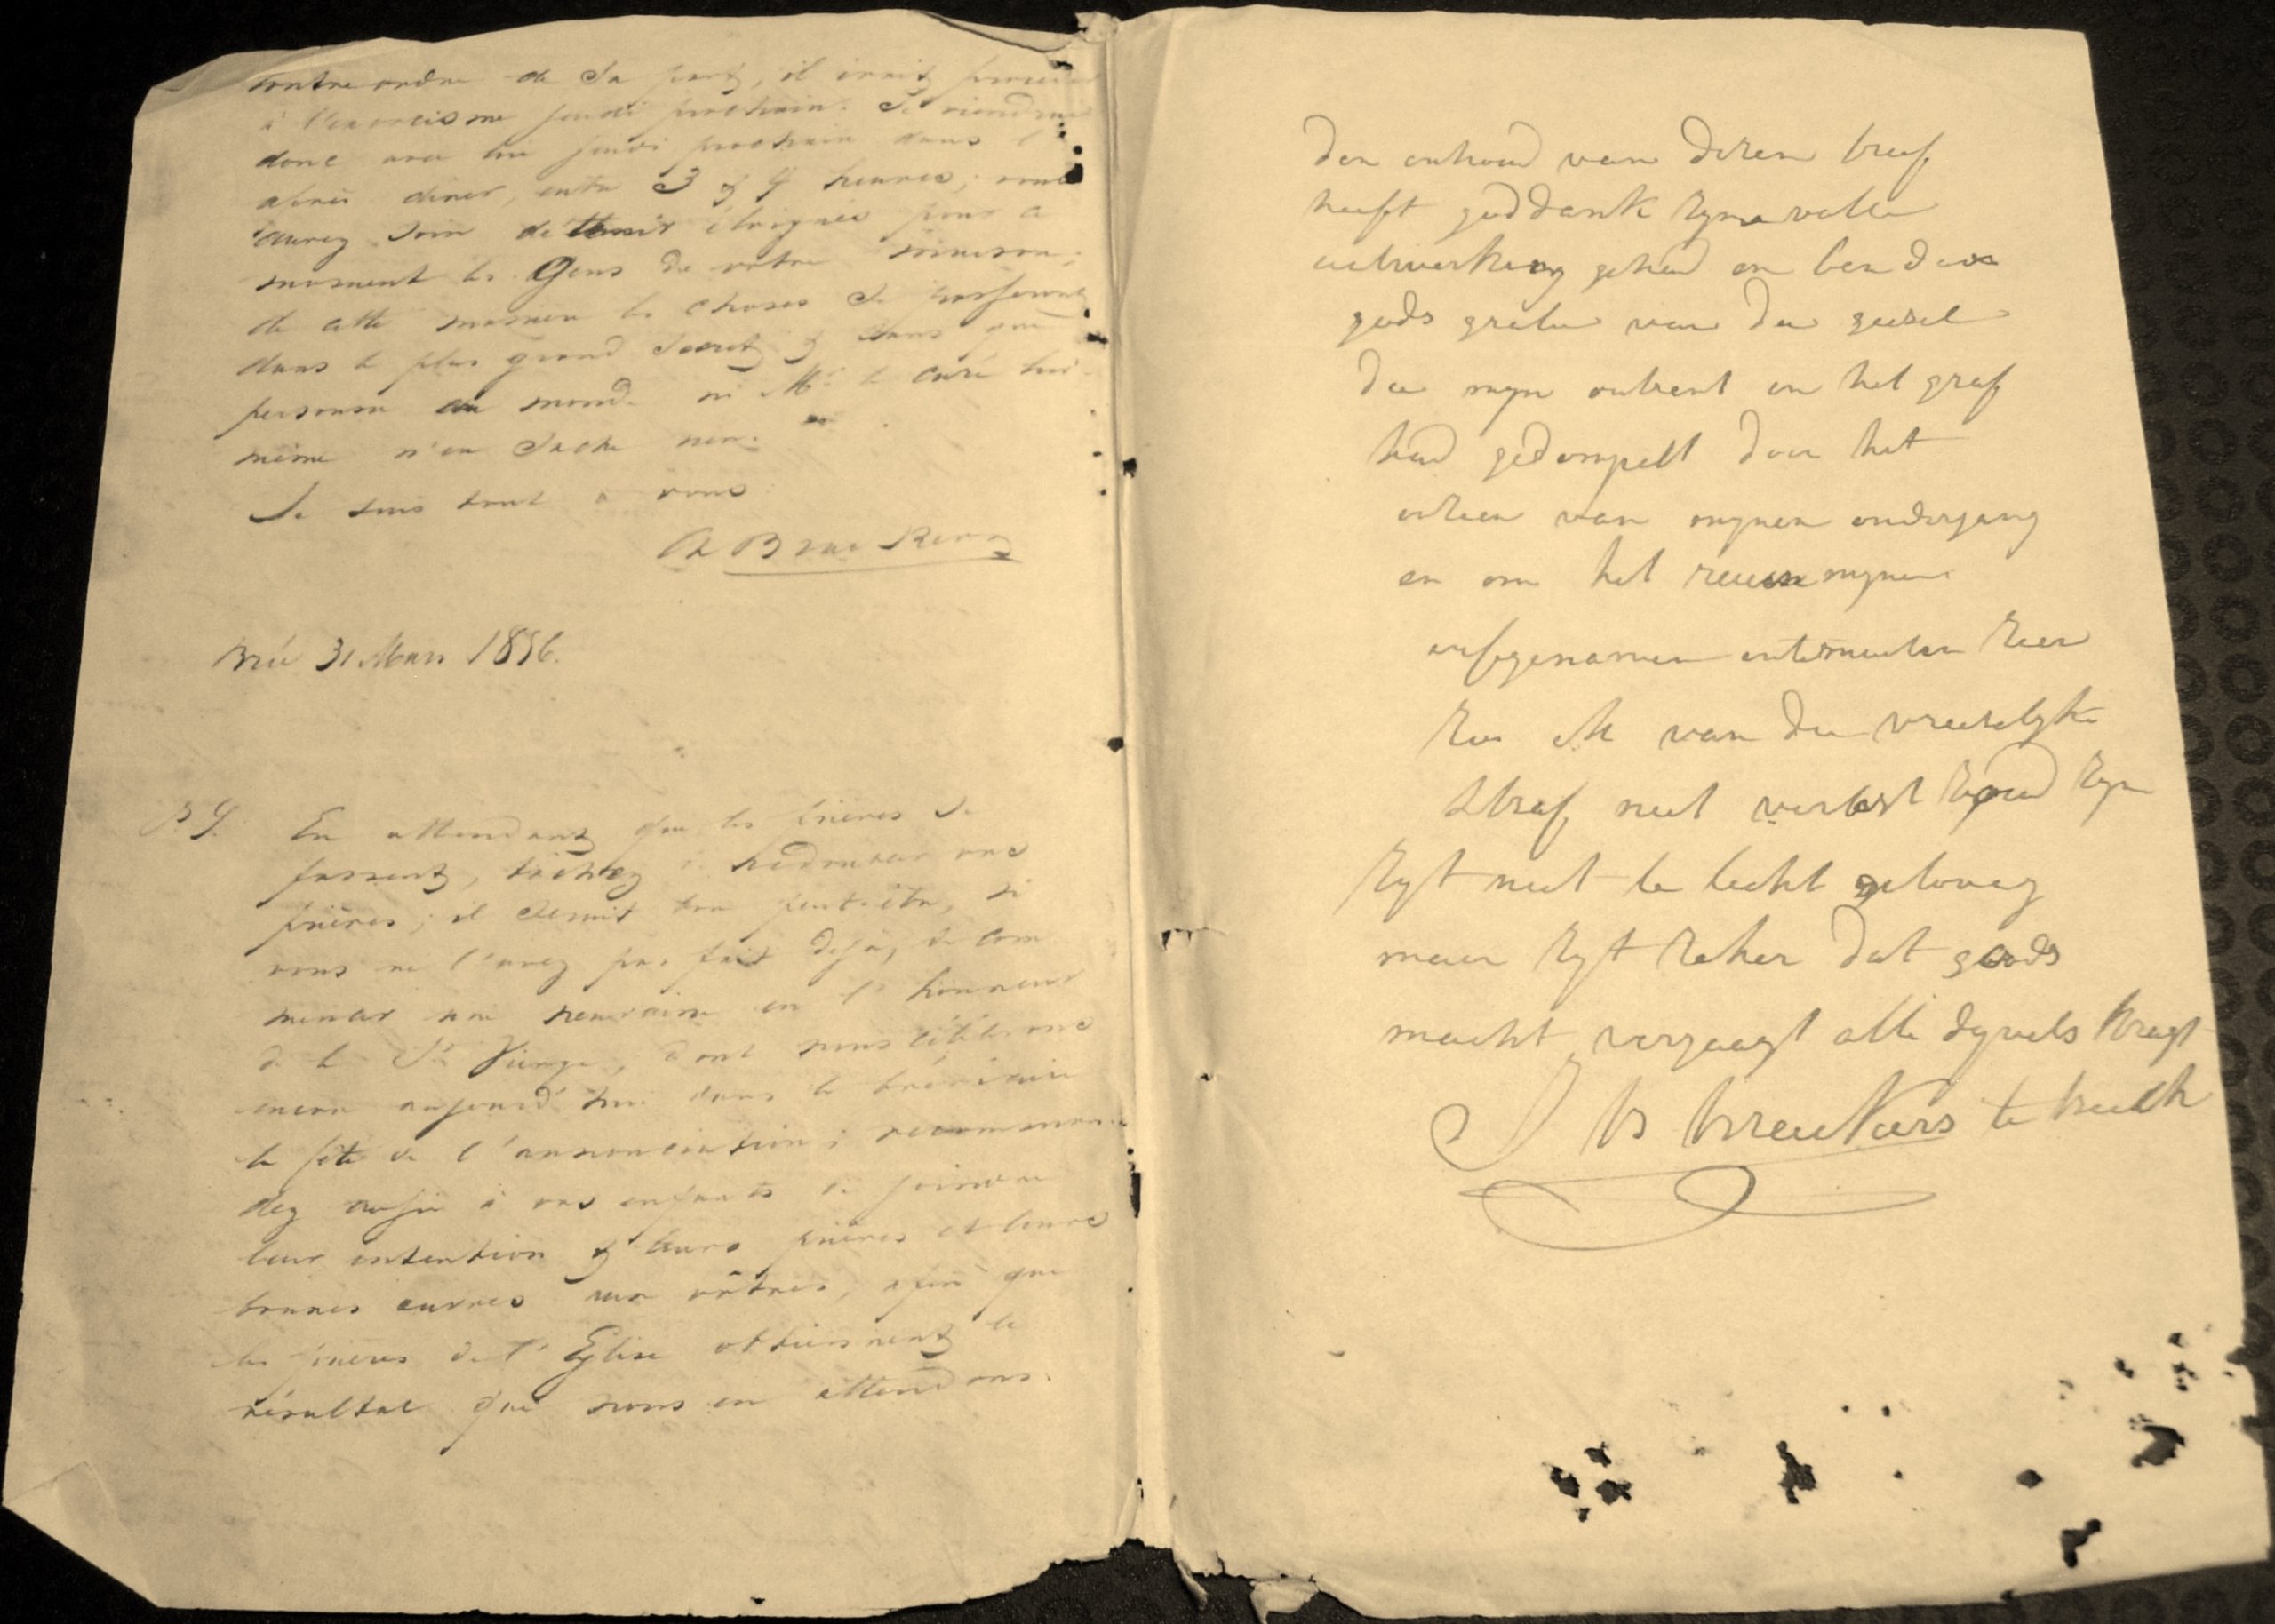 contre ordre de Sa part, il irait procéder
à l'exorcisme jeudi prochain. Je viendrai
donc avec lui jeudi prochain dans l'
après diner, entre 3 & 4 heures; vous
aurez soin de tenir éloignés pour ce
moment les Gens de votre maison;
de cette manière les choses se passeront
dans le plus grand secret & sans que
personne au monde ni Mr le curé lui-
même n'en sache rien.
Je suis tout à vous
Brée 31 Mars 1856.
PS. En attendant que les prières se
fassent, tâchez de redoubler vos
prières; il serait bon peut-être, si
vous ne l'avez pas fait déjà, de com
mencer une neuvaine en l'honneur
de la Ste Vierge, dont nous célébrons
encore aujourd'hui dans le bréviaire
la fête de l'annonciation; recomman-
dez aussi à vos enfants de joindre
leur intention & leurs prières et leurs
bonnes œuvres aux vôtres, afin que
les prières de l'Eglise obtiennent le
résultat que nous en attendons.
den enhoud van deren breef
heeft goddank zyne volle
uetwerking gehad en ben door
gods gratie van den geesel
die myn ontrent in het graf
had gedompelt door het
inzien van mynen ondergang
en om het mynen
erfgenamen zeer
zoo ik van die vreeselyke
straf neet verlost zyn
zyt neet te lecht gelovig
maer zyt zeker dat gods
macht verjaagt alle dyvels kragt
breukers te